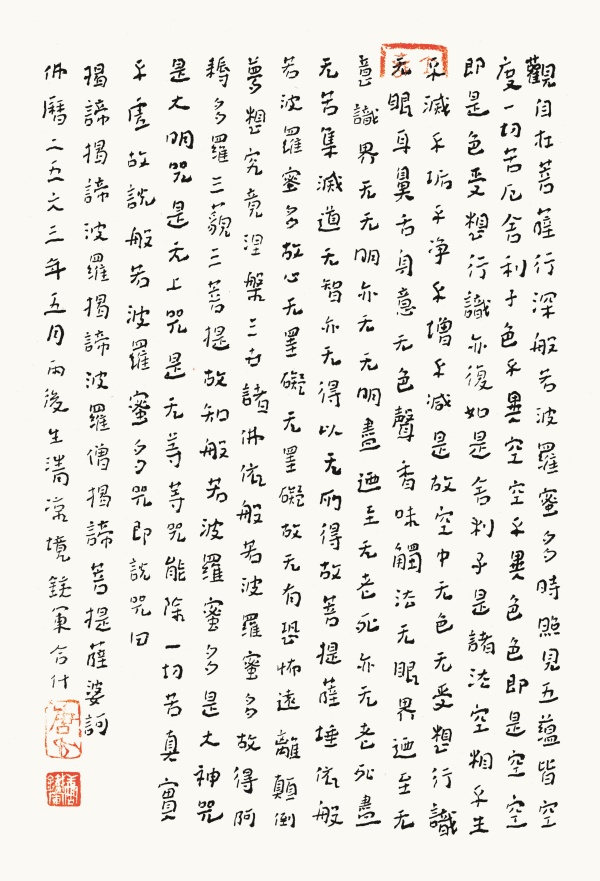 觀自在菩薩行深般若波羅蜜多時照見五蘊皆空
度一切苦厄舍利子色不異空空不異色色即是空空
即是色受想行識亦復如是舍利子是諸法空相不生
不滅不垢不淨不增不減是故空中无色无受想行識
无眼耳鼻舌身意无色聲香味觸法无眼界迺至无
意識界无无明亦无无明盡迺至无老死亦无老死盡
无苦集滅道无智亦无得以无所得故菩提薩埵依般
若波羅蜜多故心无罣礙无罣礙故无有恐怖遠離顛倒
夢想究竟涅槃三世諸佛依般若波羅蜜多故得阿
耨多羅三藐三菩提故知般若波羅蜜多是大神咒
是大明咒是无上咒是无等等咒能除一切苦真實
不虛故說般若波羅蜜多咒即說咒曰
揭諦揭諦波羅揭諦波羅僧揭諦菩提薩婆訶
佛曆二五六三年五月雨後生清涼境銕軍合什